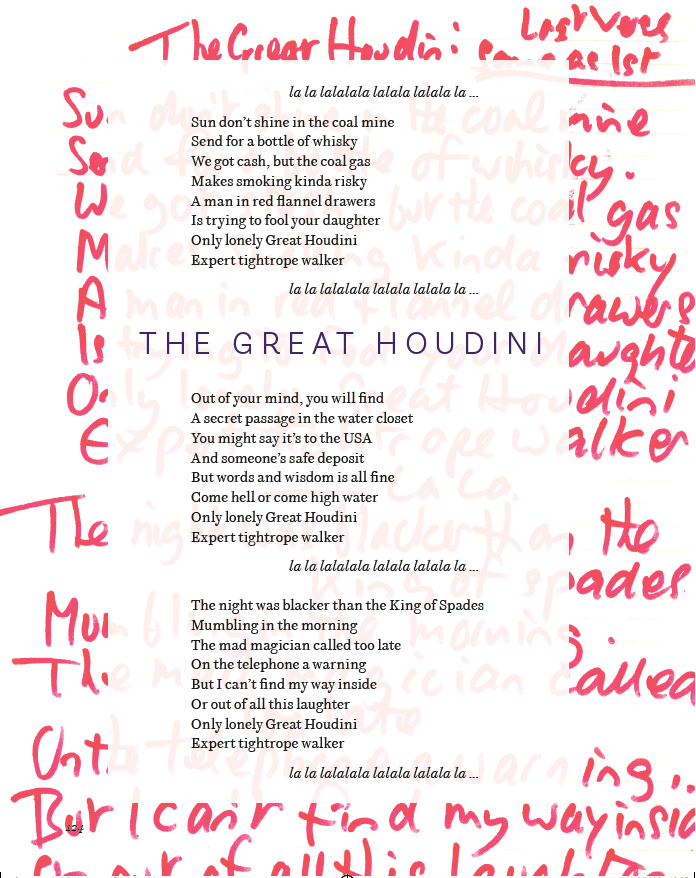 Last Verse
The Great Houdini: same as 1st
la la lalalala lalala lalala la ...
Sun don’t shine in the coal mine
Send for a bottle of whisky
We got cash, but the coal gas
Makes smoking kinda risky
A man in red flannel drawers
Is trying to fool your daughter
Only lonely Great Houdini
Expert tightrope walker
la la lalalala lalala lalala la ...
THE GREAT HOUDINI
Out of your mind, you will find
A secret passage in the water closet
You might say it’s to the USA
And someone’s safe deposit
But words and wisdom is all fine
Come hell or come high water
Only lonely Great Houdini
Expert tightrope walker
la la lalalala lalala lalala la ...
The night was blacker than the King of Spades
Mumbling in the morning
The mad magician called too late
On the telephone a warning
But I can’t find my way inside
Or out of all this laughter
Only lonely Great Houdini
Expert tightrope walker
la la lalalala lalala lalala la ...
But I can't find my way insid
124